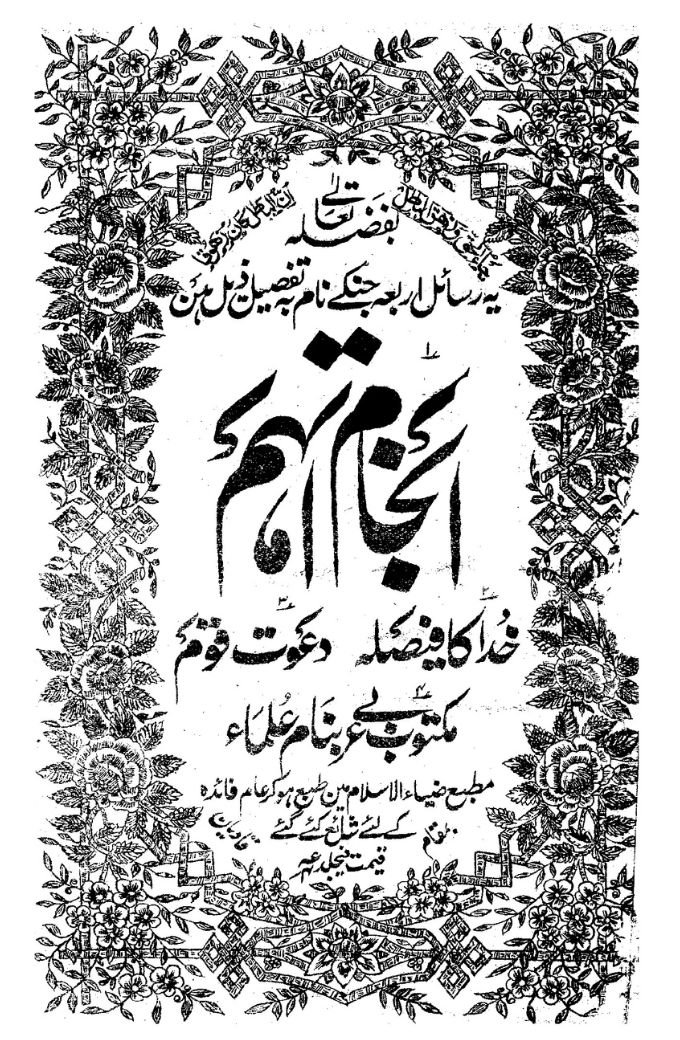 جاء الحق وزهق الباطل
ان الباطل كان زهوقا
بفضلہ تعالےٰ
یہ رسائل اربعہ جنکے نام بہ تفصیل ذیل ہین
۱
انجام آتھم
۲ ۳
خُدا کا فیصلہ دعوت قوم
۴
مکتوب عربی بنام عُلماء
مطبع ضیاء الاسلام مین طبع ہو کر عام فائدہ
کے لئے شائع کئے گئے
بمقام قادیان
قیمت فیجلد